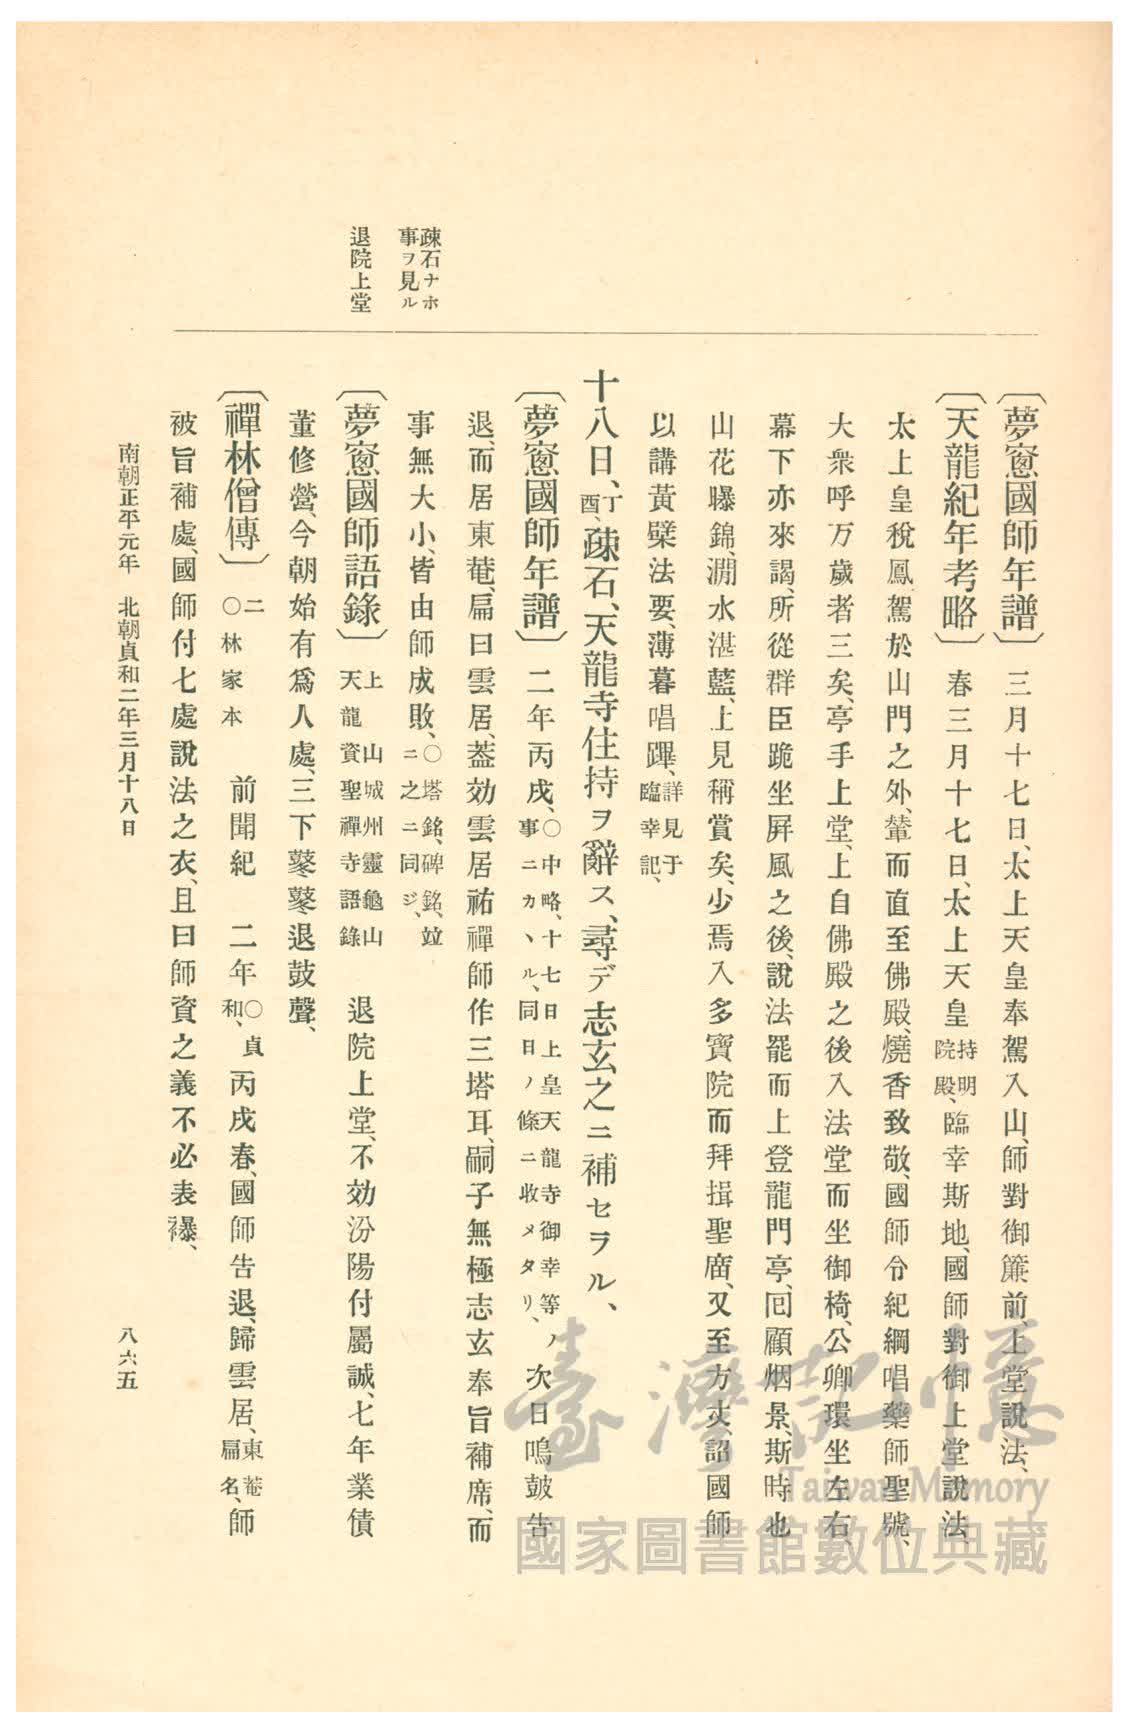 疎石ナホ
事ヲ見ル
退院上堂
〔夢窻國師年譜〕三月十七日、太上天皇奉駕入山、師對御簾前、上堂說法、
〔天龍紀年考略〕春三月十七日、太上天皇持明院殿、臨幸斯地、國師對御上堂說法、
太上皇稅鳳駕於山門之外、輦而直至佛殿、燒香致敬、國師令紀綱唱藥師聖號、
大衆呼万歲者三矣、亭手上堂、上自佛殿之後入法堂而坐御椅、公卿環坐左右、
幕下亦來謁、所從群臣跪坐屛風之後、說法罷而上登龍門亭、囘顧烟景、斯時也
山花曝錦、澗水湛藍、上見稱賞矣、少焉入多寶院而拜揖聖庿、又至方丈、詔國師
以講黃檗法要、薄暮唱蹕、詳見于臨幸記、
十八日、丁酉、疎石、天龍寺住持ヲ辭ス、尋デ志玄之ニ補セラル、
〔夢窻國師年譜〕二年丙戌、○中略、十七日上皇天龍寺御幸等ノ事ニカヽル、同日ノ條ニ收メタリ、次日鳴鼓告
退、而居東菴、扁曰雲居、葢効雲居祐禪師作三塔耳、嗣子無極志玄奉旨補席、而
事無大小、皆由師成敗、○塔銘、碑銘、竝ニ之ニ同ジ、
〔夢窻國師語錄〕上 山城州靈龜山天龍資聖禪寺語錄 退院上堂、不効汾陽付屬誠、七年業債
董修營、今朝始有爲人處、三下鼕鼕退鼓聲、
〔禪林僧傳〕二 ○林家本 前聞紀 二年○貞和、丙戌春、國師告退、歸雲居、東菴扁名、師
被旨補處、國師付七處說法之衣、且曰師資之義不必表襮、
南朝正平元年 北朝貞和二年三月十八日
八六五
臺灣記憶
Taiwan Memory
國家圖書館數位典藏